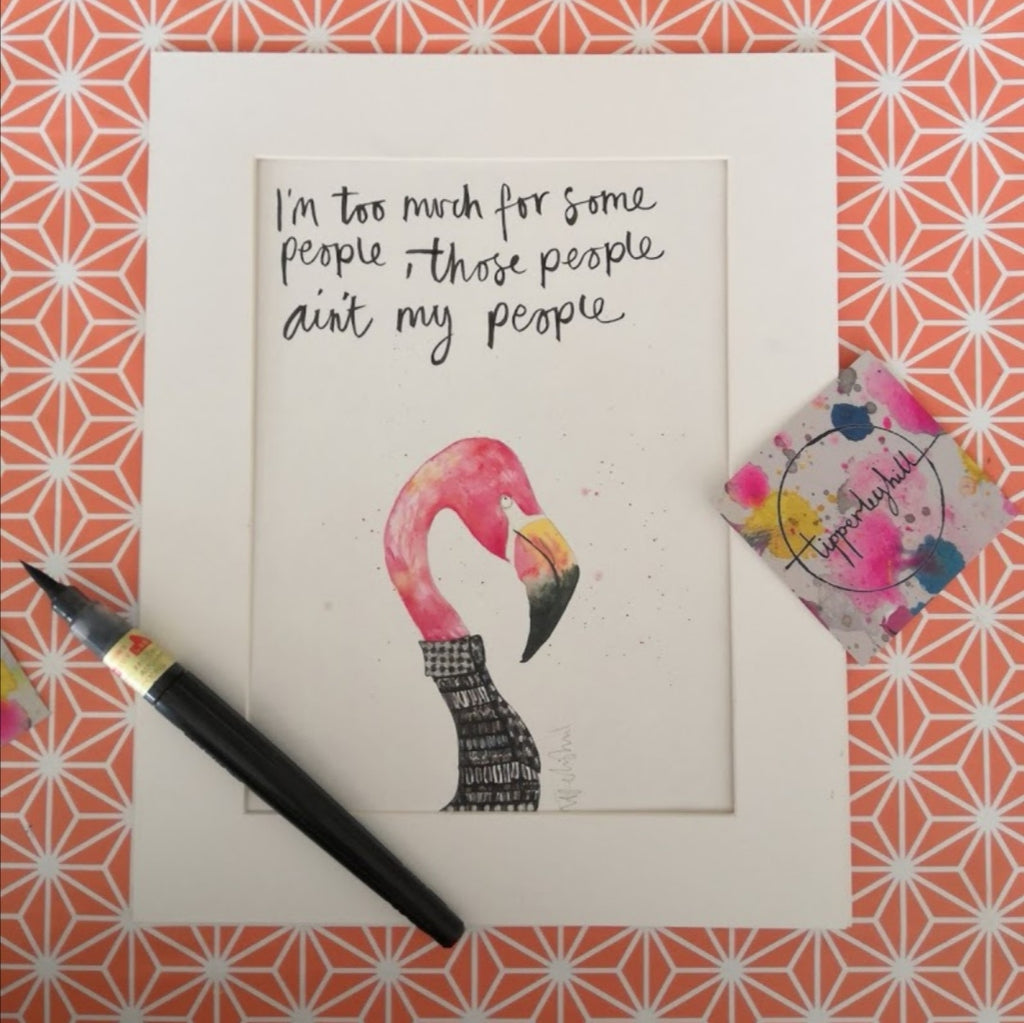 I'm too much for some
people, those people
ain't my people
tipperleyhill